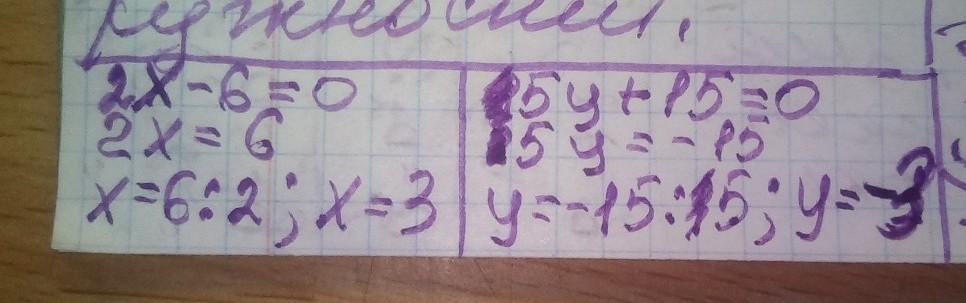 ружности.
2x-6=0
2x=6
x=6:2; x=3
15y+15=0
15y=-15
y=-15:15; y=-